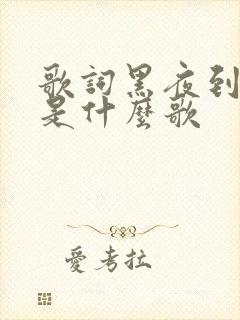 歌詞黑夜到
是什麼歌
愛考拉